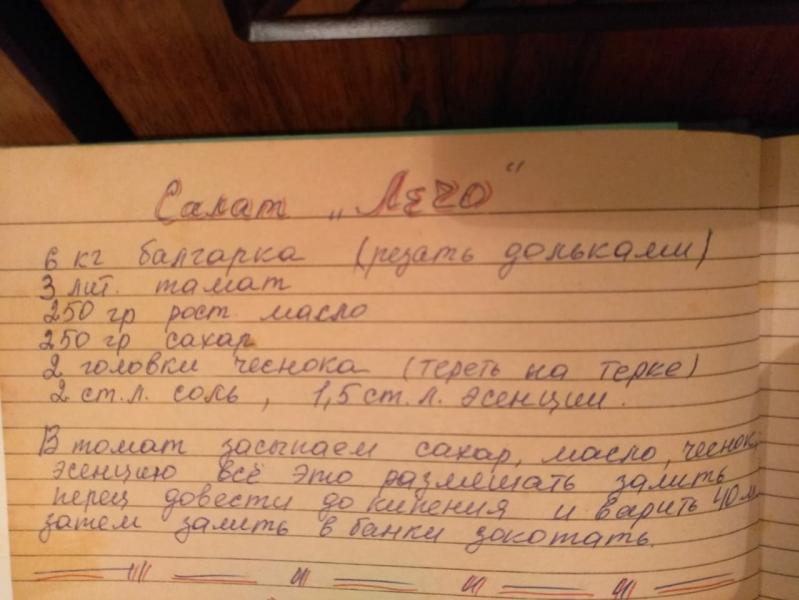 Салат „Лечо"
6 кг балгарка (резать дольками)
3 лит. тамат
250 гр рост. масло
250 гр сахар
2 головки чеснока (тереть на терке)
2 ст.л. соль, 1,5 ст.л. эсенции.
В томат засыпаем сахар, масло, чеснок
эсенцию всё это размешать залить
перец довести до кипения и варить 40 м
затем залить в банки закотать.